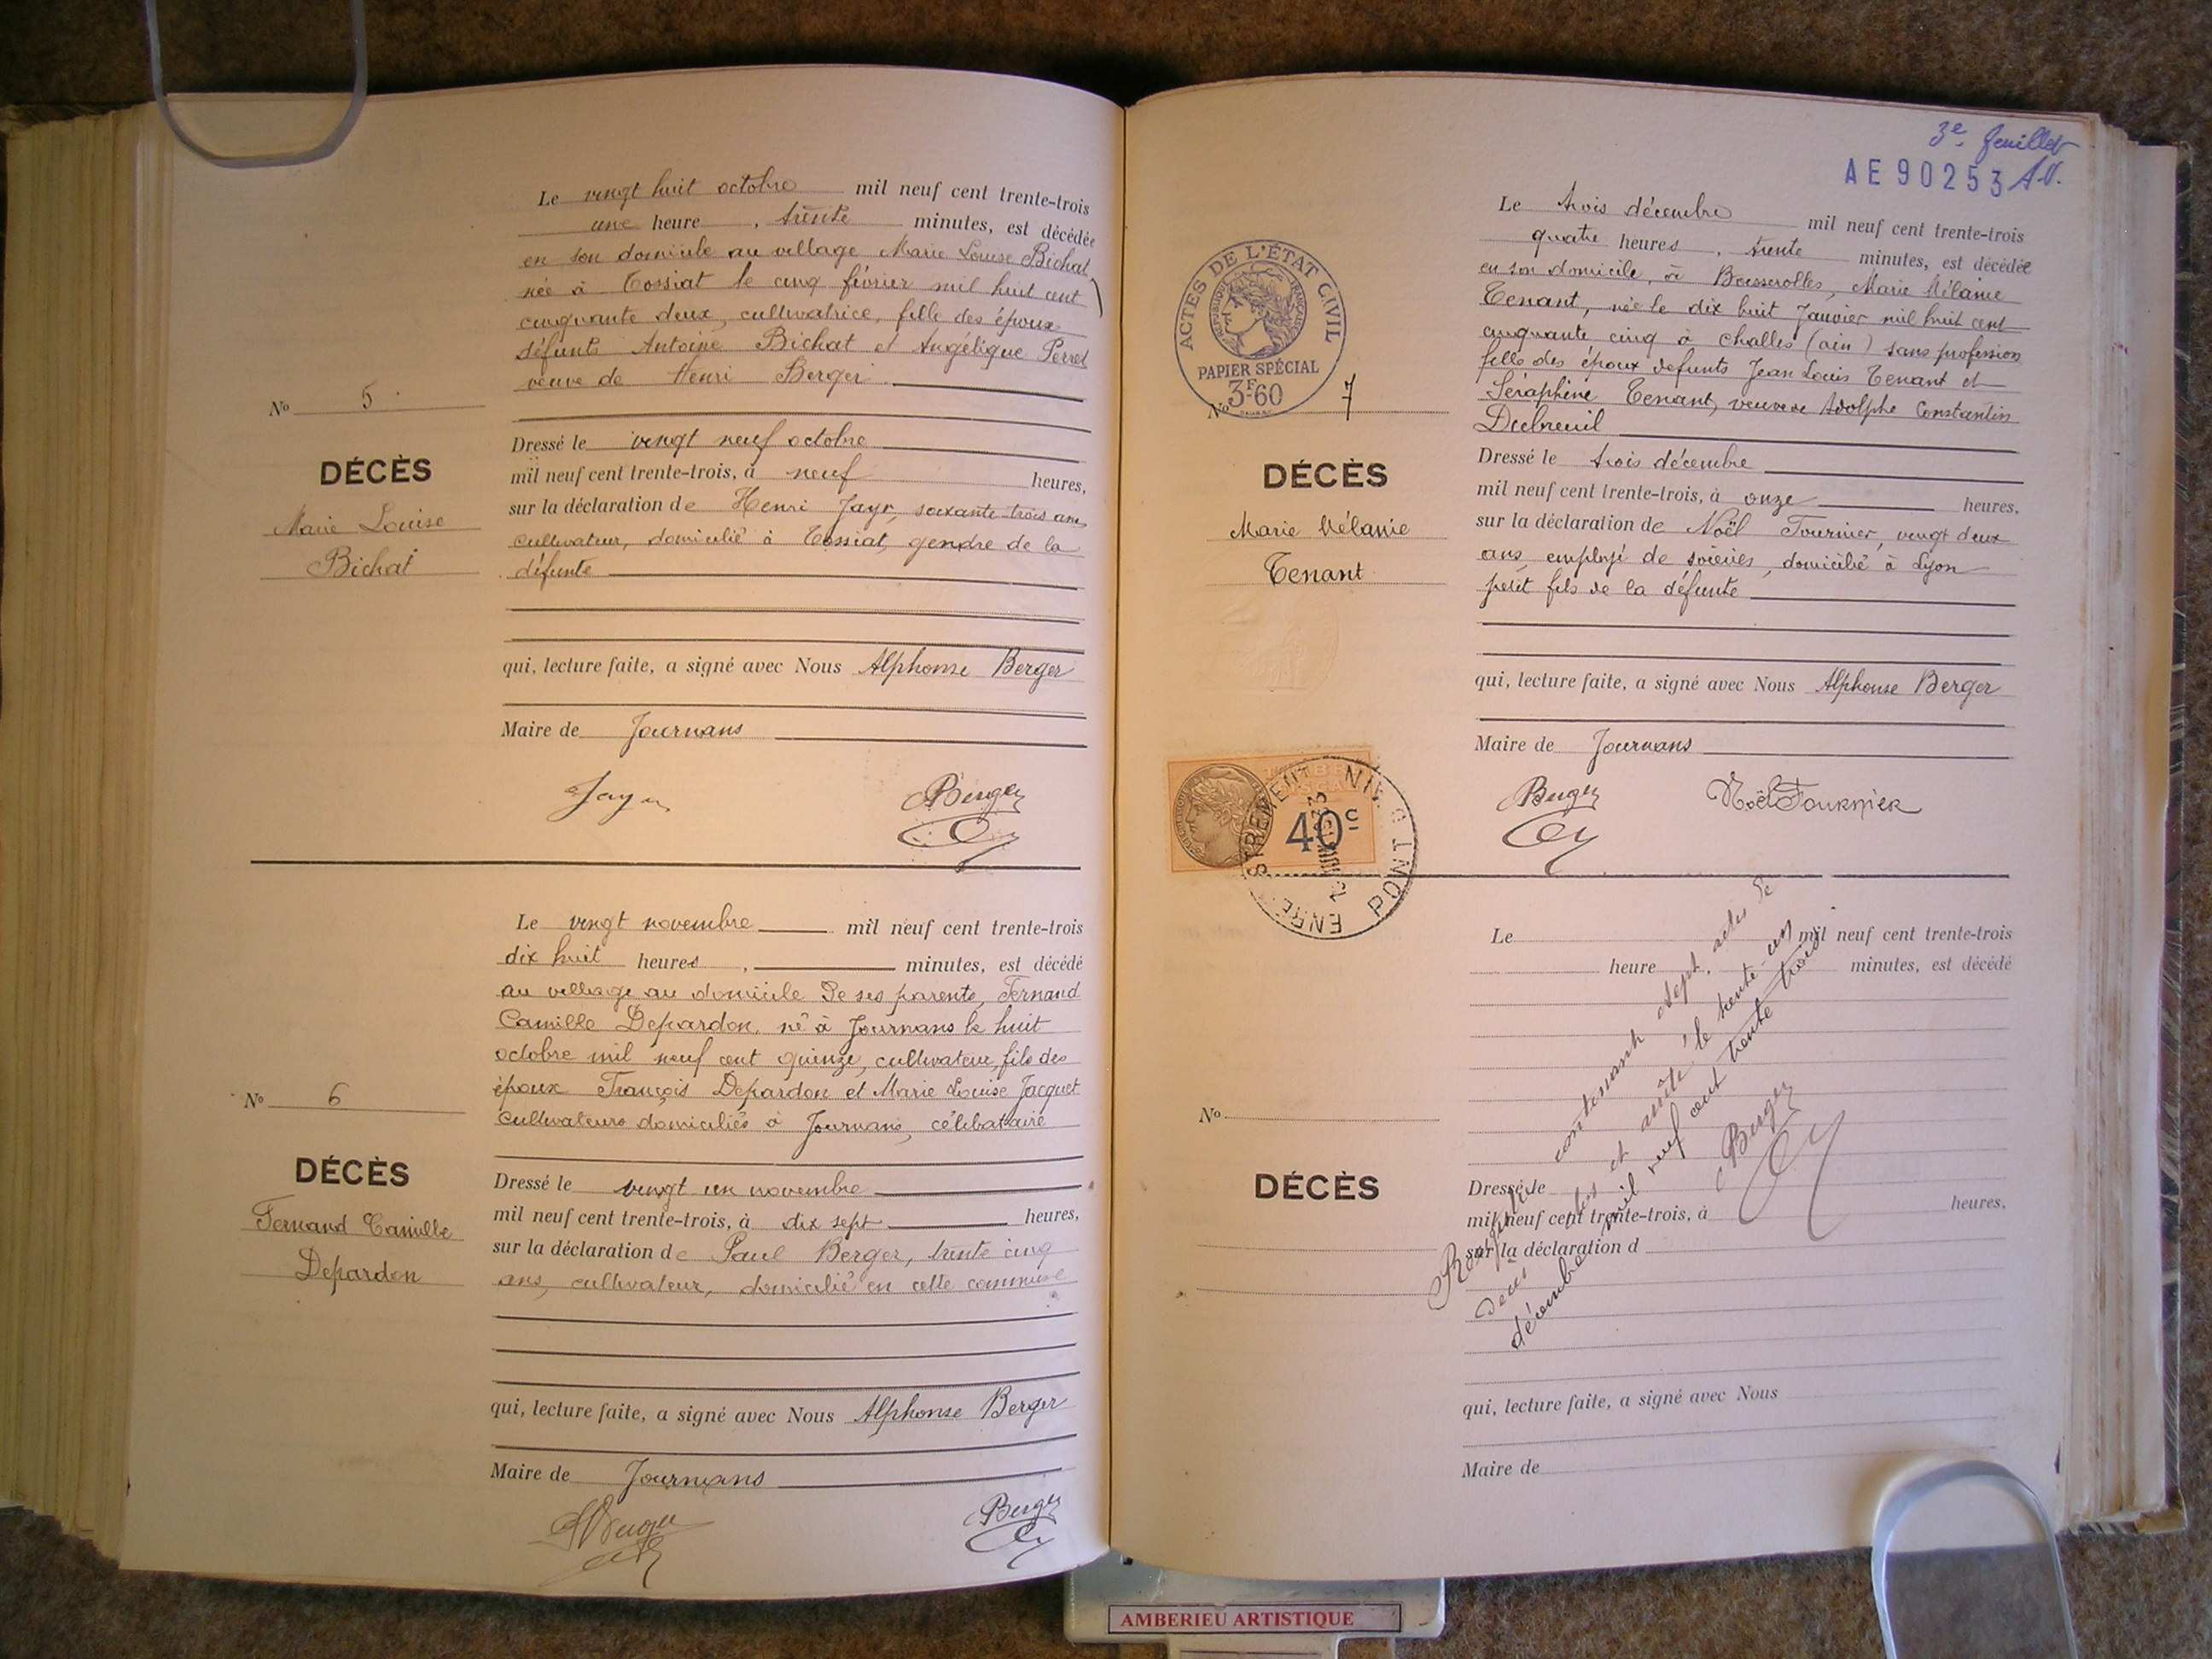 Le vingt huit octobre mil neuf cent trente-trois
une heure, trente minutes, est décédée
en son domicile au village Marie Louise Bichat
née à Tossiat le cinq février mil huit cent
cinquante deux, cultivatrice, fille des époux
défunts Antoine Bichat et Angélique Perret
veuve de Henri Berger
No 5
DÉCÈS
Marie Louise
Bichat
Dressé le vingt neuf octobre
mil neuf cent trente-trois, à neuf heures,
sur la déclaration de Henri Jayr, soixante trois ans,
cultivateur, domicilié à Tossiat, gendre de la
défunte
qui, lecture faite, a signé avec Nous Alphonse Berger
Maire de Journans
Jayr
Berger
Le vingt novembre mil neuf cent trente-trois
dix huit heures, minutes, est décédé
au village au domicile de ses parents, Fernand
Camille Depardon, né à Journans le huit
octobre mil neuf cent quinze, cultivateur, fils des
époux François Depardon et Marie Louise Jacquet
cultivateurs domiciliés à Journans, célibataire
No 6
DÉCÈS
Fernand Camille
Depardon
Dressé le vingt un novembre
mil neuf cent trente-trois, à dix sept heures,
sur la déclaration de Paul Berger, trente cinq
ans, cultivateur, domicilié en cette commune
qui, lecture faite, a signé avec Nous Alphonse Berger
Maire de Journans
Berger
Berger
3e feuillet
AE90253 A.V.
ACTES DE L'ÉTAT CIVIL
RÉPUBLIQUE FRANÇAISE
PAPIER SPÉCIAL
3F60
Le trois décembre mil neuf cent trente-trois
quatre heures, trente minutes, est décédée
en son domicile, à Bousserolles, Marie Mélanie
Tenant, née le dix huit Janvier mil huit cent
cinquante cinq à Challes (ain) sans profession
fille des époux défunts Jean Louis Tenant et
Séraphine Tenant, veuve de Adolphe Constantin
Dubreuil
No 7
DÉCÈS
Marie Mélanie
Tenant
Dressé le trois décembre
mil neuf cent trente-trois, à onze heures,
sur la déclaration de Noël Fournier, vingt deux
ans, employé de soieries, domicilié à Lyon
petit fils de la défunte
qui, lecture faite, a signé avec Nous Alphonse Berger
Maire de Journans
Berger
Noël Fournier
40c
ENREGISTREMENT
PONT
Le mil neuf cent trente-trois
heure minutes, est décédé
No
DÉCÈS
Dressé le
mil neuf cent trente-trois, à heures,
sur la déclaration d
qui, lecture faite, a signé avec Nous
Maire de
contenant sept actes de
décès et arrêté le trente-un
décembre mil neuf cent trente trois
Berger
AMBERIEU ARTISTIQUE